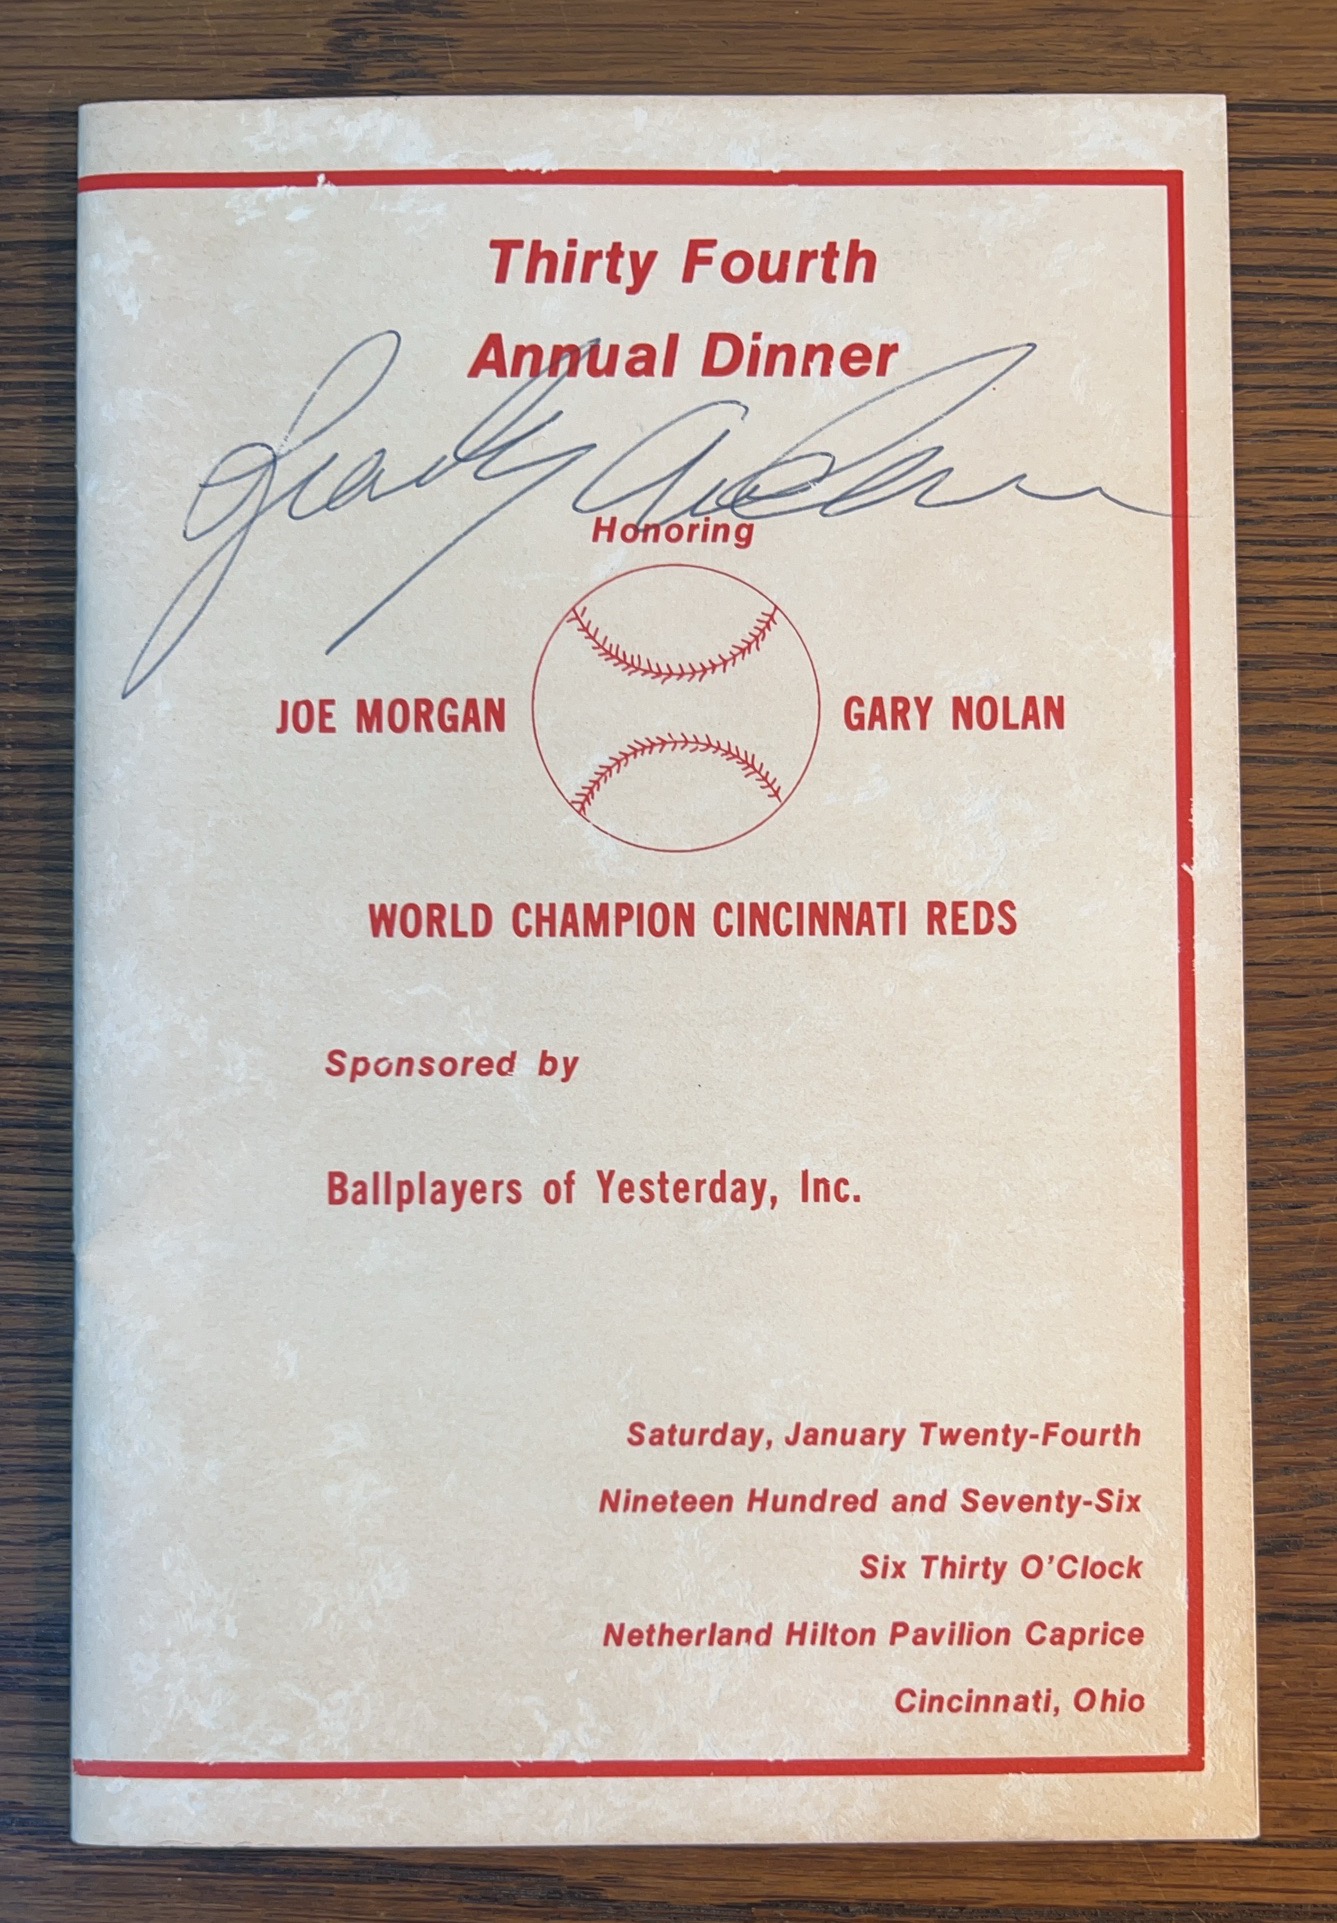 Thirty Fourth
Annual Dinner
Sparky Anderson
Honoring
JOE MORGAN GARY NOLAN
WORLD CHAMPION CINCINNATI REDS
Sponsored by
Ballplayers of Yesterday, Inc.
Saturday, January Twenty-Fourth
Nineteen Hundred and Seventy-Six
Six Thirty O'Clock
Netherland Hilton Pavilion Caprice
Cincinnati, Ohio